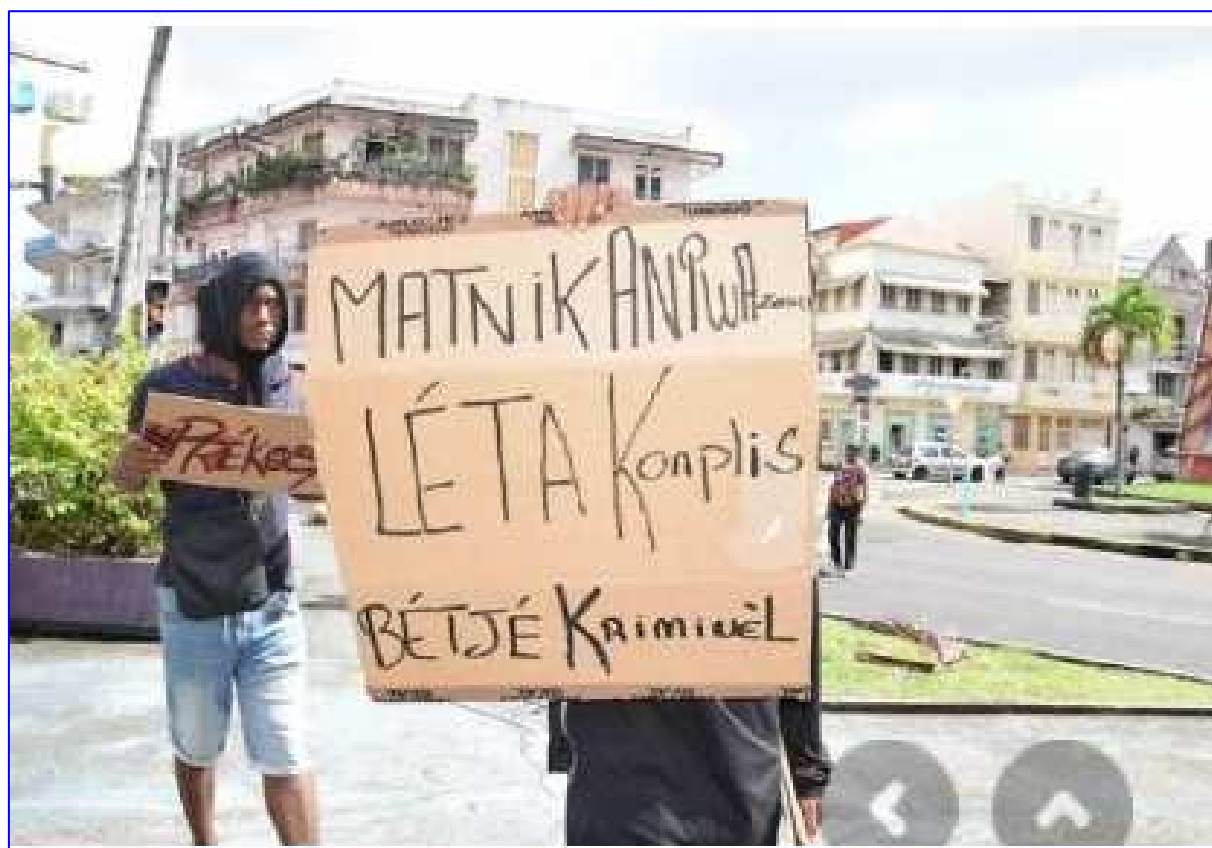 MATNIK ANPWA
LÉTA Konplis
BÉTJÉ KRiMiNÈL